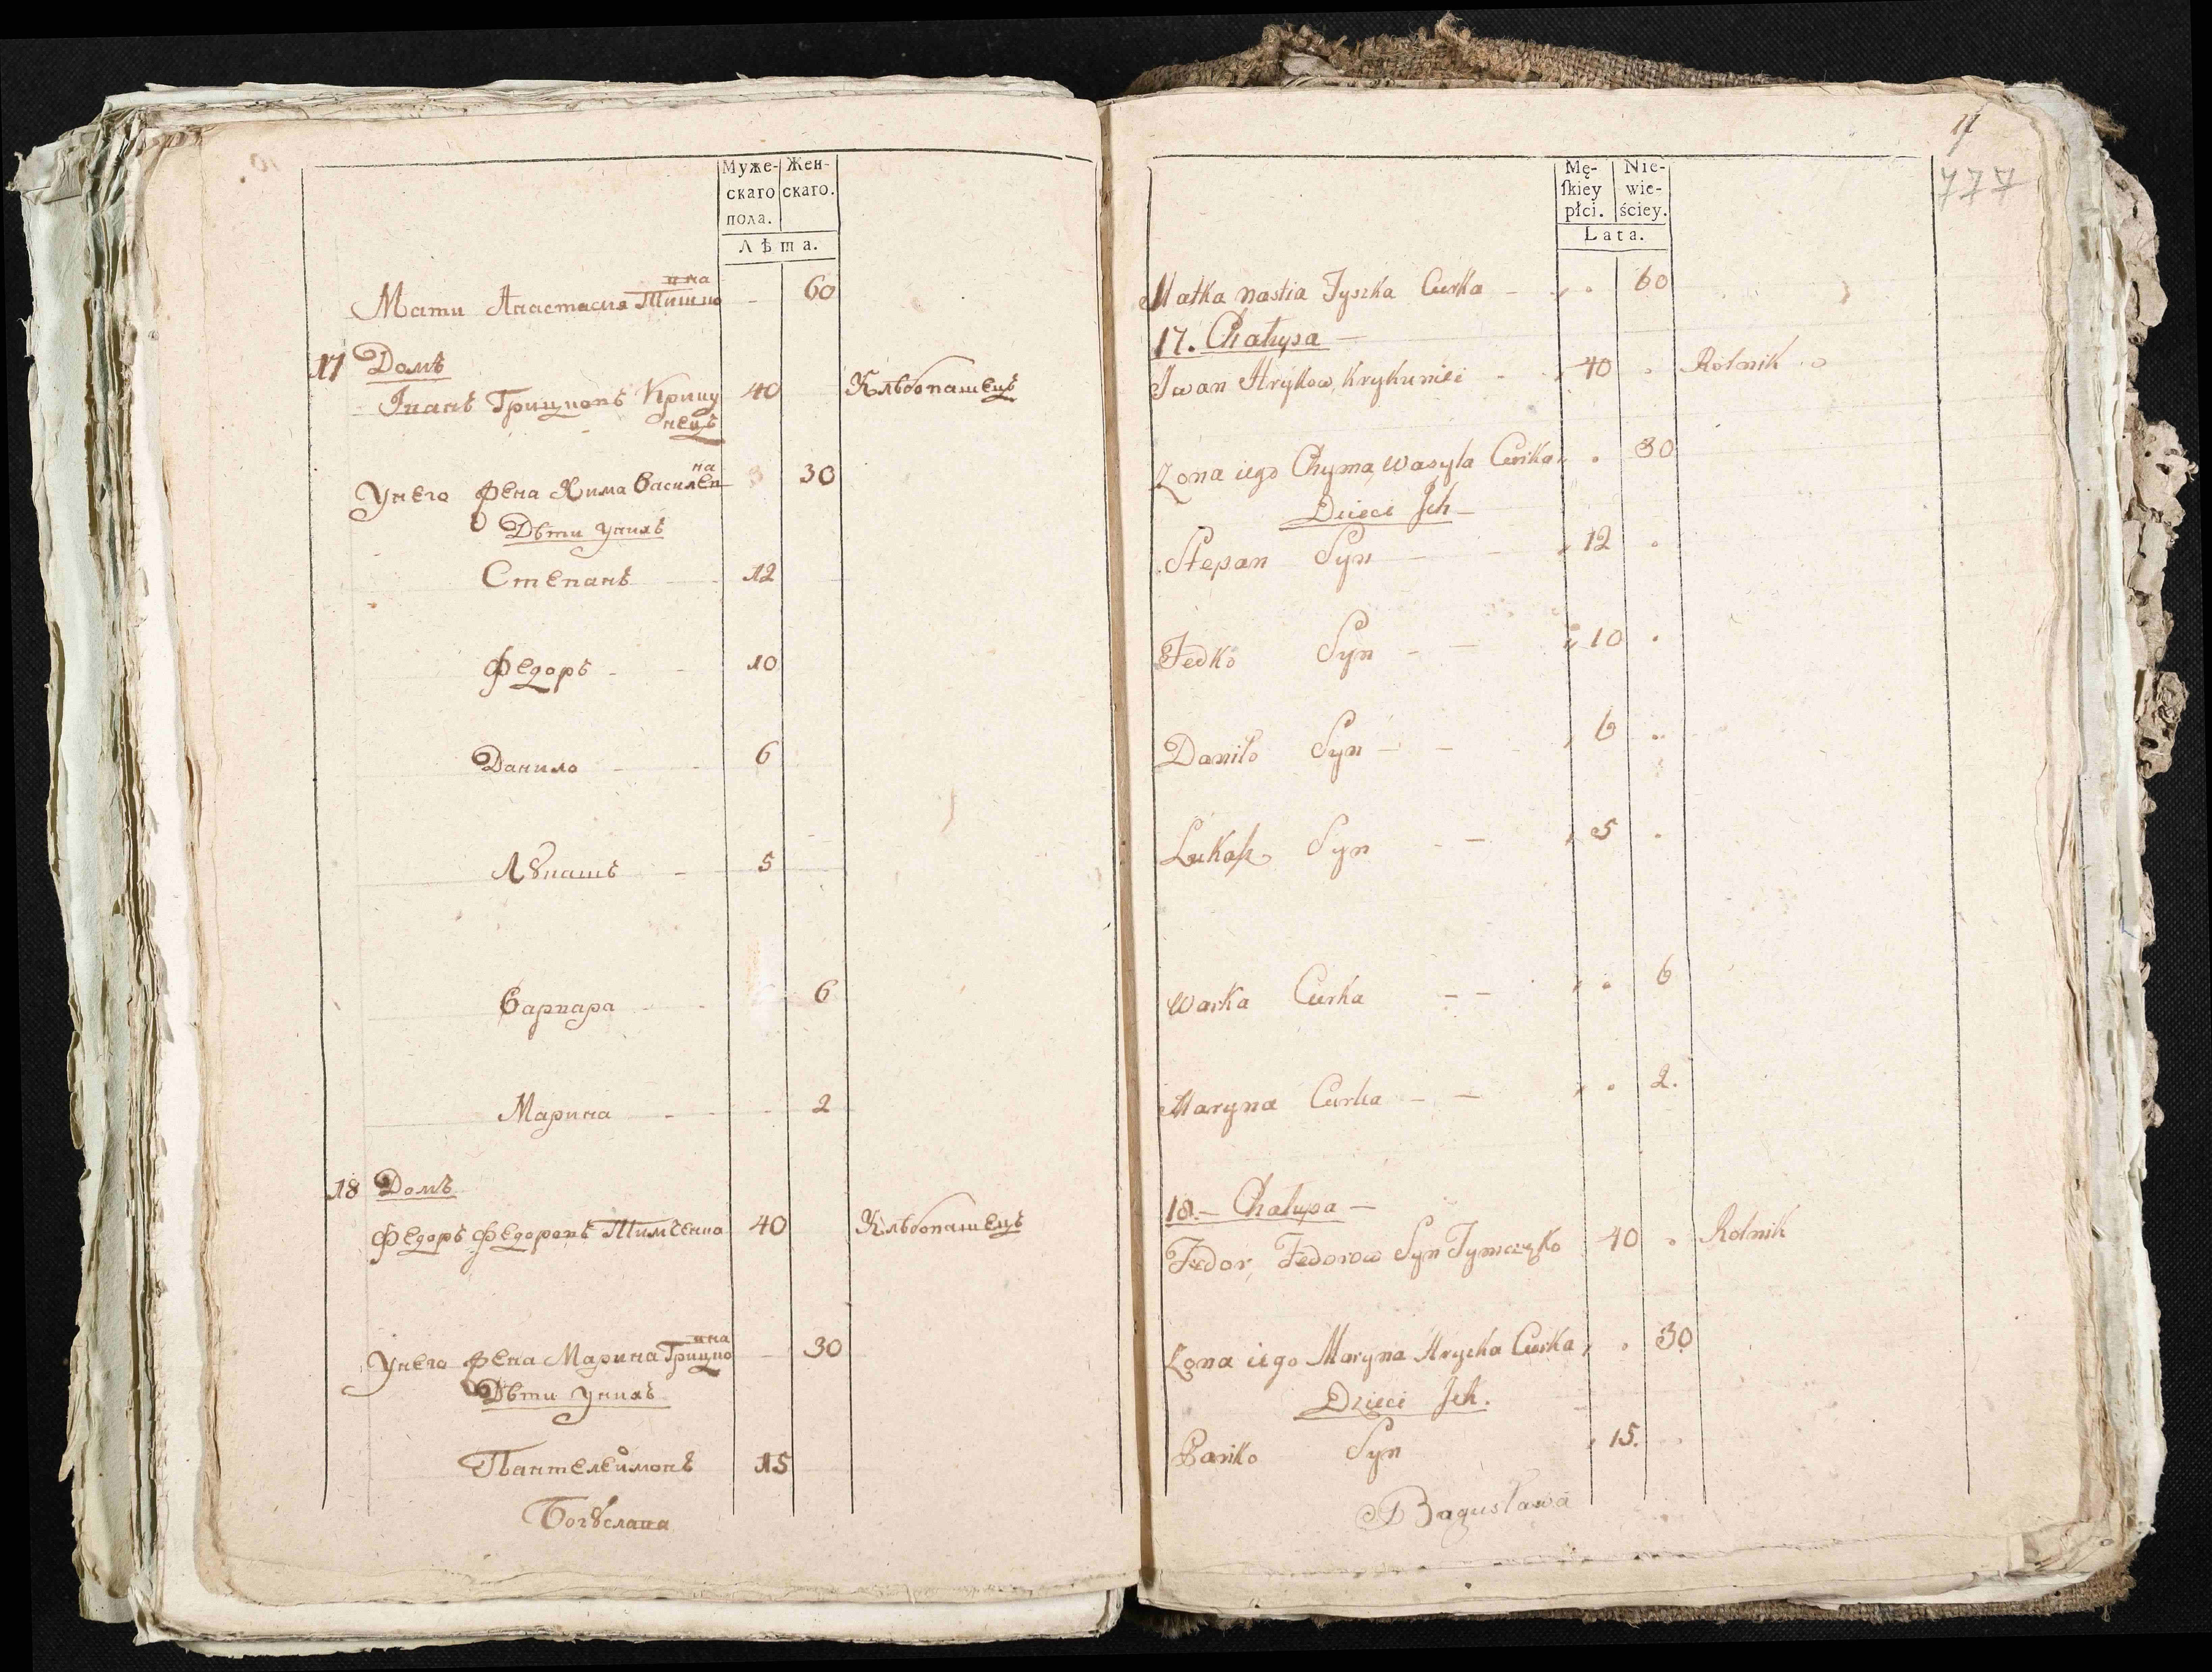 Муже-
скаго
пола.
Жен-
скаго.
Лѣта.
Мати Анастасия Тишко
вна
60
17 Домъ
Іванъ Грицковъ Крику
нецъ
40
Хлѣбопашецъ
Унего жена Хима Василев
на
30
Дѣти унихъ
Степанъ 12
Федоръ 10
Данило 6
Лꙋкашъ 5
Варвара 6
Марина 2
18 Домъ
Федоръ Федоровъ Тимченко 40 Хлѣбопашецъ
Унего жена Марина Грицко
вна
30
Дѣти унихъ
Пантелеймонъ 15
Богꙋслава
11
777
Mę-
ſkiey
płci.
Nie-
wie-
ściey.
Lata.
Matka Nastia Tyszka Curka 60
17. Chałupa
Iwan Hrykow Krykuniec 40 Rolnik
Zona iego Chyma Wasyla Curka 30
Dzieci Ich
Stepan Syn 12
Fedko Syn 10
Daniło Syn 6
Łukaſz Syn 5
Warka Curka 6
Maryna Curka 2.
18. Chałupa
Fedor Fedorow Syn Tymczęko 40 Rolnik
Zona iego Maryna Hrycka Curka 30
Dzieci Ich.
Pańko Syn 15.
Bagusława